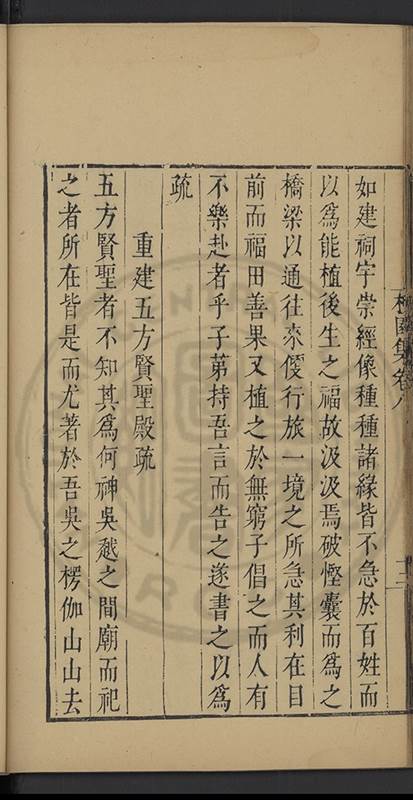 如建祠宇崇經像種種諸緣皆不急於百姓而
以爲能植後生之福故汲汲焉破慳囊而爲之
橋梁以通往來儍行旅一境之所急其利在目
前而福田善果又植之於無窮子倡之而人有
不樂赴者乎子苐持吾言而告之遂書之以爲
疏
重建五方賢聖殿疏
五方賢聖者不知其爲何神吳越之間廟而祀
之者所在皆是而尤著於吾吳之楞伽山山去